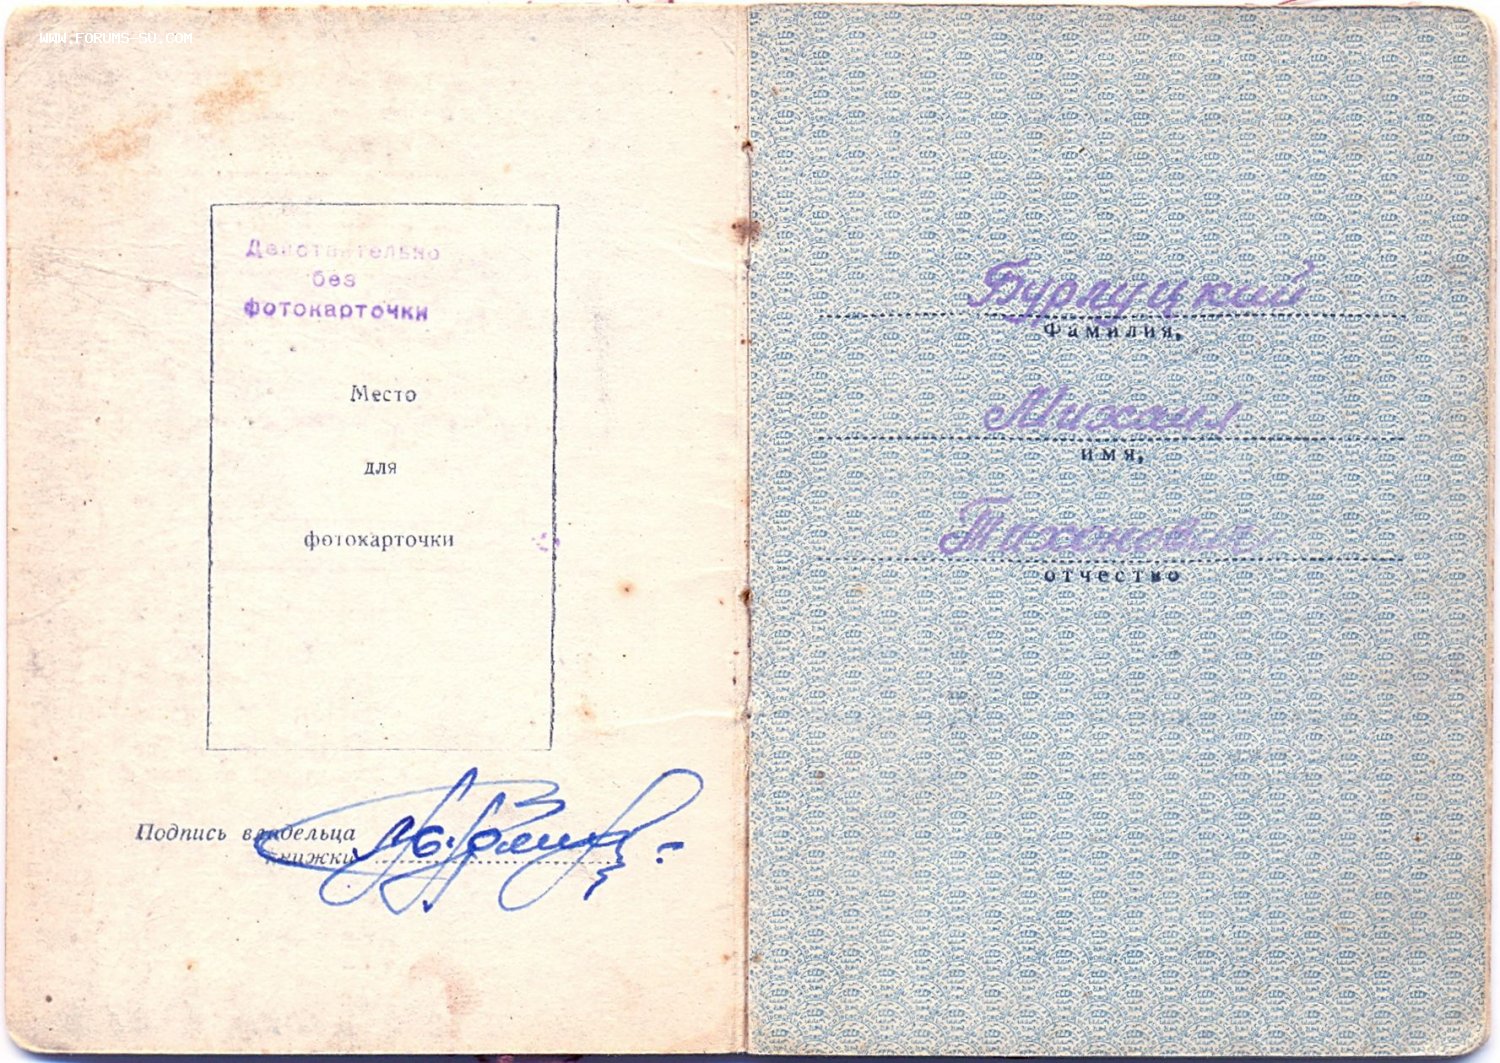 WWW.FORUMS-SU.COM
Действительно
без
фотокарточки
Место
для
фотокарточки
Подпись владельца
книжки
Бурлуцкий
Фамилия,
Михаил
имя,
Тихонович
отчество